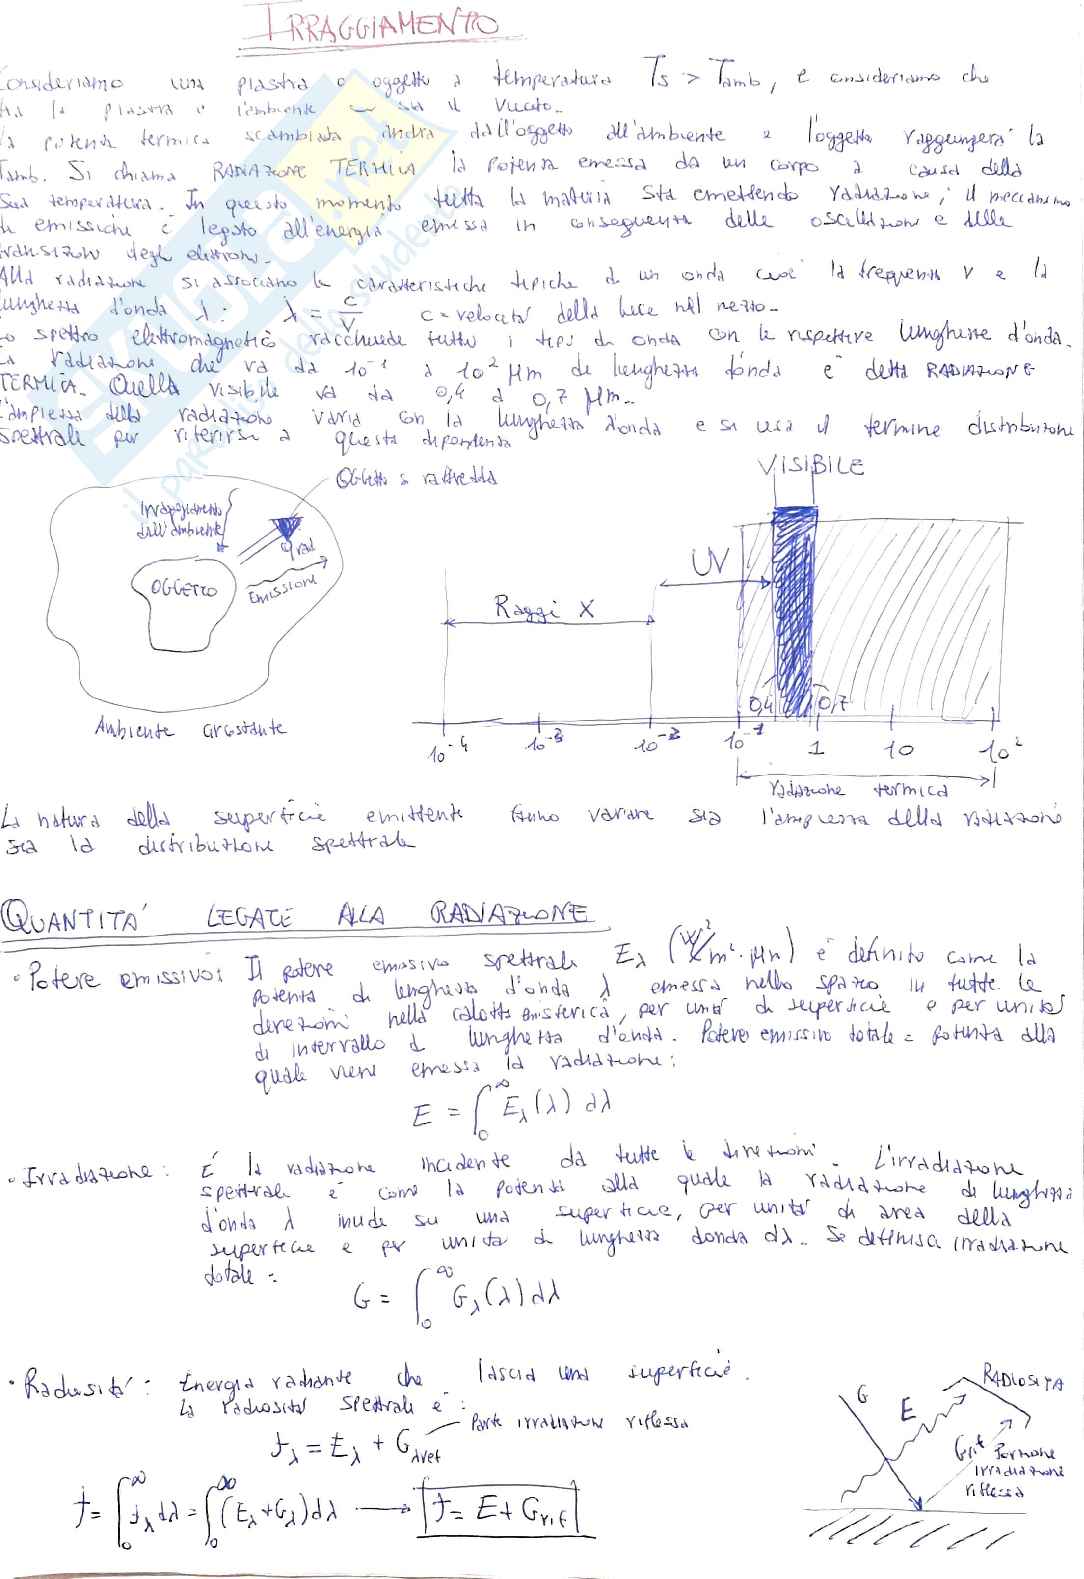 IRRAGGIAMENTO
Consideriamo una piastra o oggetto a temperatura Ts > Tamb, e consideriamo che
tra la piastra e l'ambiente sia il vuoto.
La potenza termica scambiata andrà dall'oggetto all'ambiente e l'oggetto raggiungerà la
Tamb. Si chiama RADIAZIONE TERMICA la potenza emessa da un corpo a causa della
sua temperatura. In questo momento tutta la materia sta emettendo radiazione; il meccanismo
di emissione è legato all'energia emessa in conseguenza delle oscillazioni e delle
transizioni degli elettroni.
Alla radiazione si associano le caratteristiche tipiche di un onda cioè la frequenza ν e la
lunghezza d'onda λ: λ = c/ν c = velocità della luce nel mezzo.
Lo spettro elettromagnetico racchiude tutti i tipi di onda con le rispettive lunghezze d'onda.
La radiazione che va da 10⁻¹ a 10² μm di lunghezza d'onda è detta RADIAZIONE
TERMICA. Quella visibile va da 0,4 a 0,7 μm.
L'ampiezza della radiazione varia con la lunghezza d'onda e si usa il termine distribuzione
spettrale per riferirsi a questa dipendenza
Oggetto si raffredda
Irraggiamento
dall'ambiente
qrad
OGGETTO
Emissione
Ambiente circostante
VISIBILE
UV
Raggi X
0,4 0,7
10⁻⁴ 10⁻³ 10⁻² 10⁻¹ 1 10 10²
radiazione termica
La natura della superficie emittente fanno variare sia l'ampiezza della radiazione
sia la distribuzione spettrale
QUANTITA' LEGATE ALLA RADIAZIONE
• Potere emissivo: Il potere emissivo spettrale Eλ (W/m²·μm) è definito come la
potenza di lunghezza d'onda λ emessa nello spazio in tutte le
direzioni nella calotta emisferica, per unità di superficie e per unità
di intervallo di lunghezza d'onda. Potere emissivo totale = potenza alla
quale viene emessa la radiazione:
E = ∫₀^∞ Eλ(λ) dλ
• Irradiazione: È la radiazione incidente da tutte le direzioni. L'irradiazione
spettrale è come la potenza alla quale la radiazione di lunghezza
d'onda λ incide su una superficie, per unità di area della
superficie e per unità di lunghezza donda dλ. Se definisci irradiazione
totale =
G = ∫₀^∞ Gλ(λ) dλ
• Radiosità: Energia radiante che lascia una superficie.
La radiosità spettrale è:
Jλ = Eλ + Gλref Parte irradiazione riflessa
J = ∫₀^∞ Jλ dλ = ∫₀^∞ (Eλ+Gλ) dλ → J = E + Grif
RADIOSITA
G
E
Grif Porzione
irradiazione
riflessa